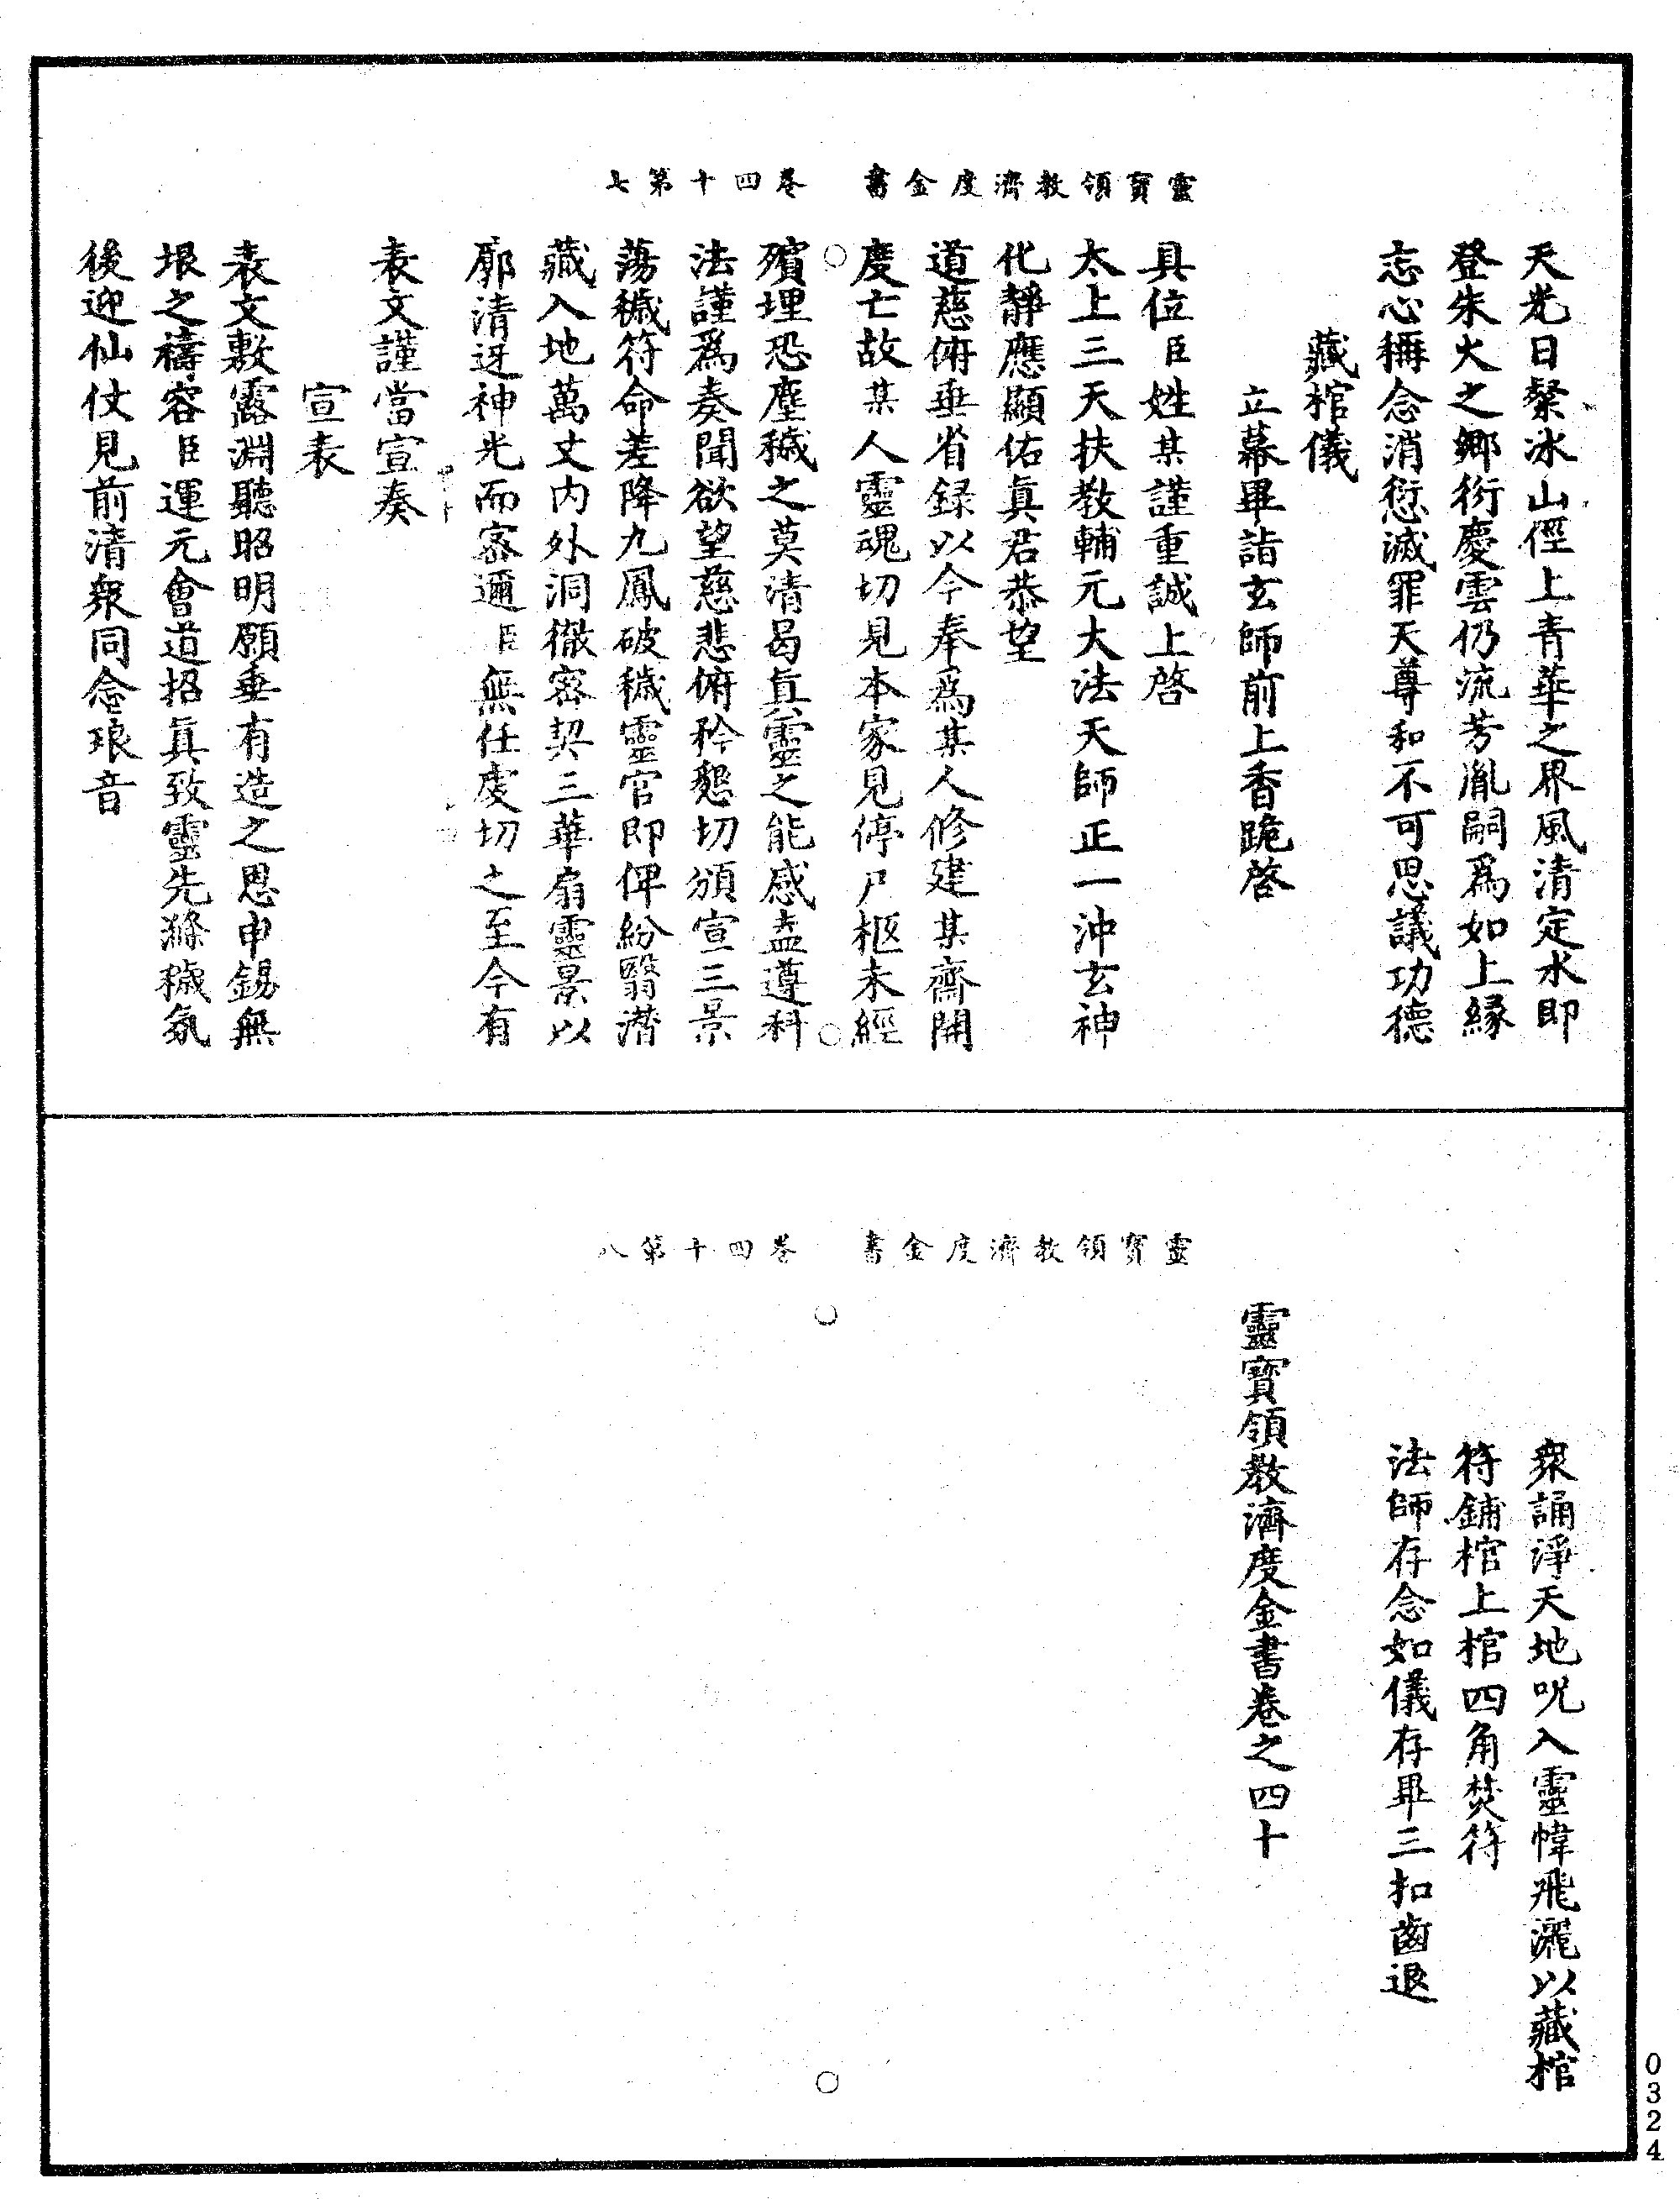 靈寶領教濟度金書　卷四十第七
天光日粲冰山徑上青華之界風清定水即
登朱火之鄉衍慶雲仍流芳胤嗣爲如上緣
志心稱念消愆滅罪天尊和不可思議功德
藏棺儀
立幕畢詣玄師前上香跪啓
具位臣姓某謹重誠上啓
太上三天扶教輔元大法天師正一沖玄神
化靜應顯佑眞君恭望
道慈俯垂省録以今奉爲某人修建某齋開
度亡故某人靈魂切見本家見停尸柩未經
殯埋恐塵穢之莫清曷眞靈之能感盍遵科
法謹爲奏聞欲望慈悲俯矜懇切頒宣三景
蕩穢符命差降九鳳破穢靈官即俾紛翳潜
藏入地萬丈内外洞徹密契三華扇靈景以
廓清迓神光而密邇臣無任虔切之至今有
表文謹當宣奏
宣表
表文敷露淵聽昭明願垂有造之恩申錫無
垠之禱容臣運元會道招眞致靈先滌穢氛
後迎仙仗見前清衆同念琅音
靈寶領教濟度金書　卷四十第八
衆誦淨天地呪入靈幃飛灑以藏棺
符鋪棺上棺四角焚符
法師存念如儀存畢三扣齒退
靈寶領教濟度金書卷之四十
0324